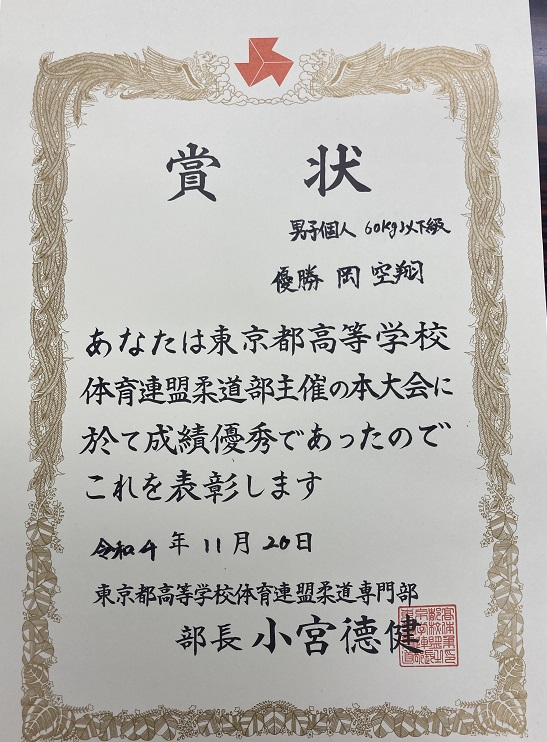 賞状
男子個人 60kg以下級
優勝 岡 空翔
あなたは東京都高等学校
体育連盟柔道部主催の本大会に
於て成績優秀であったので
これを表彰します
令和4年11月20日
東京都高等学校体育連盟柔道専門部
部長 小宮德健